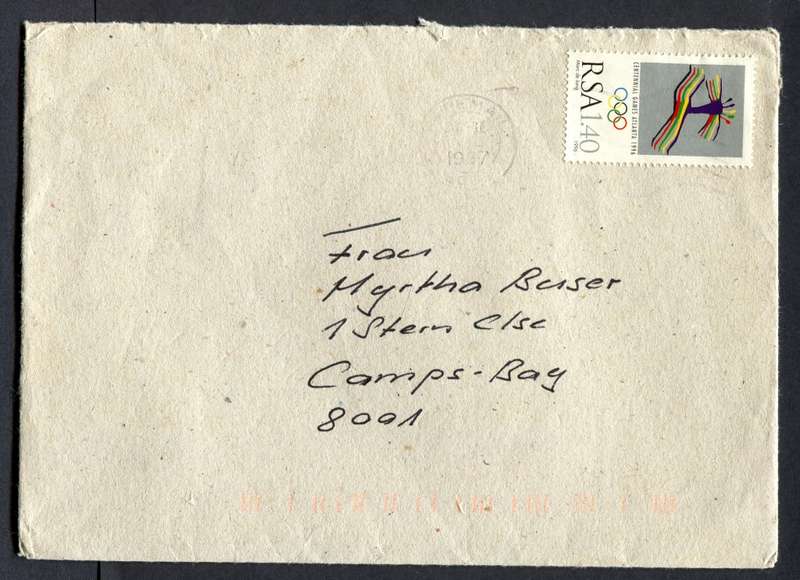 CENTENNIAL GAMES ATLANTA 1996
RSA 1.40
1996
Frau
Myrtha Buser
1 Stern Clse
Camps-Bay
8001